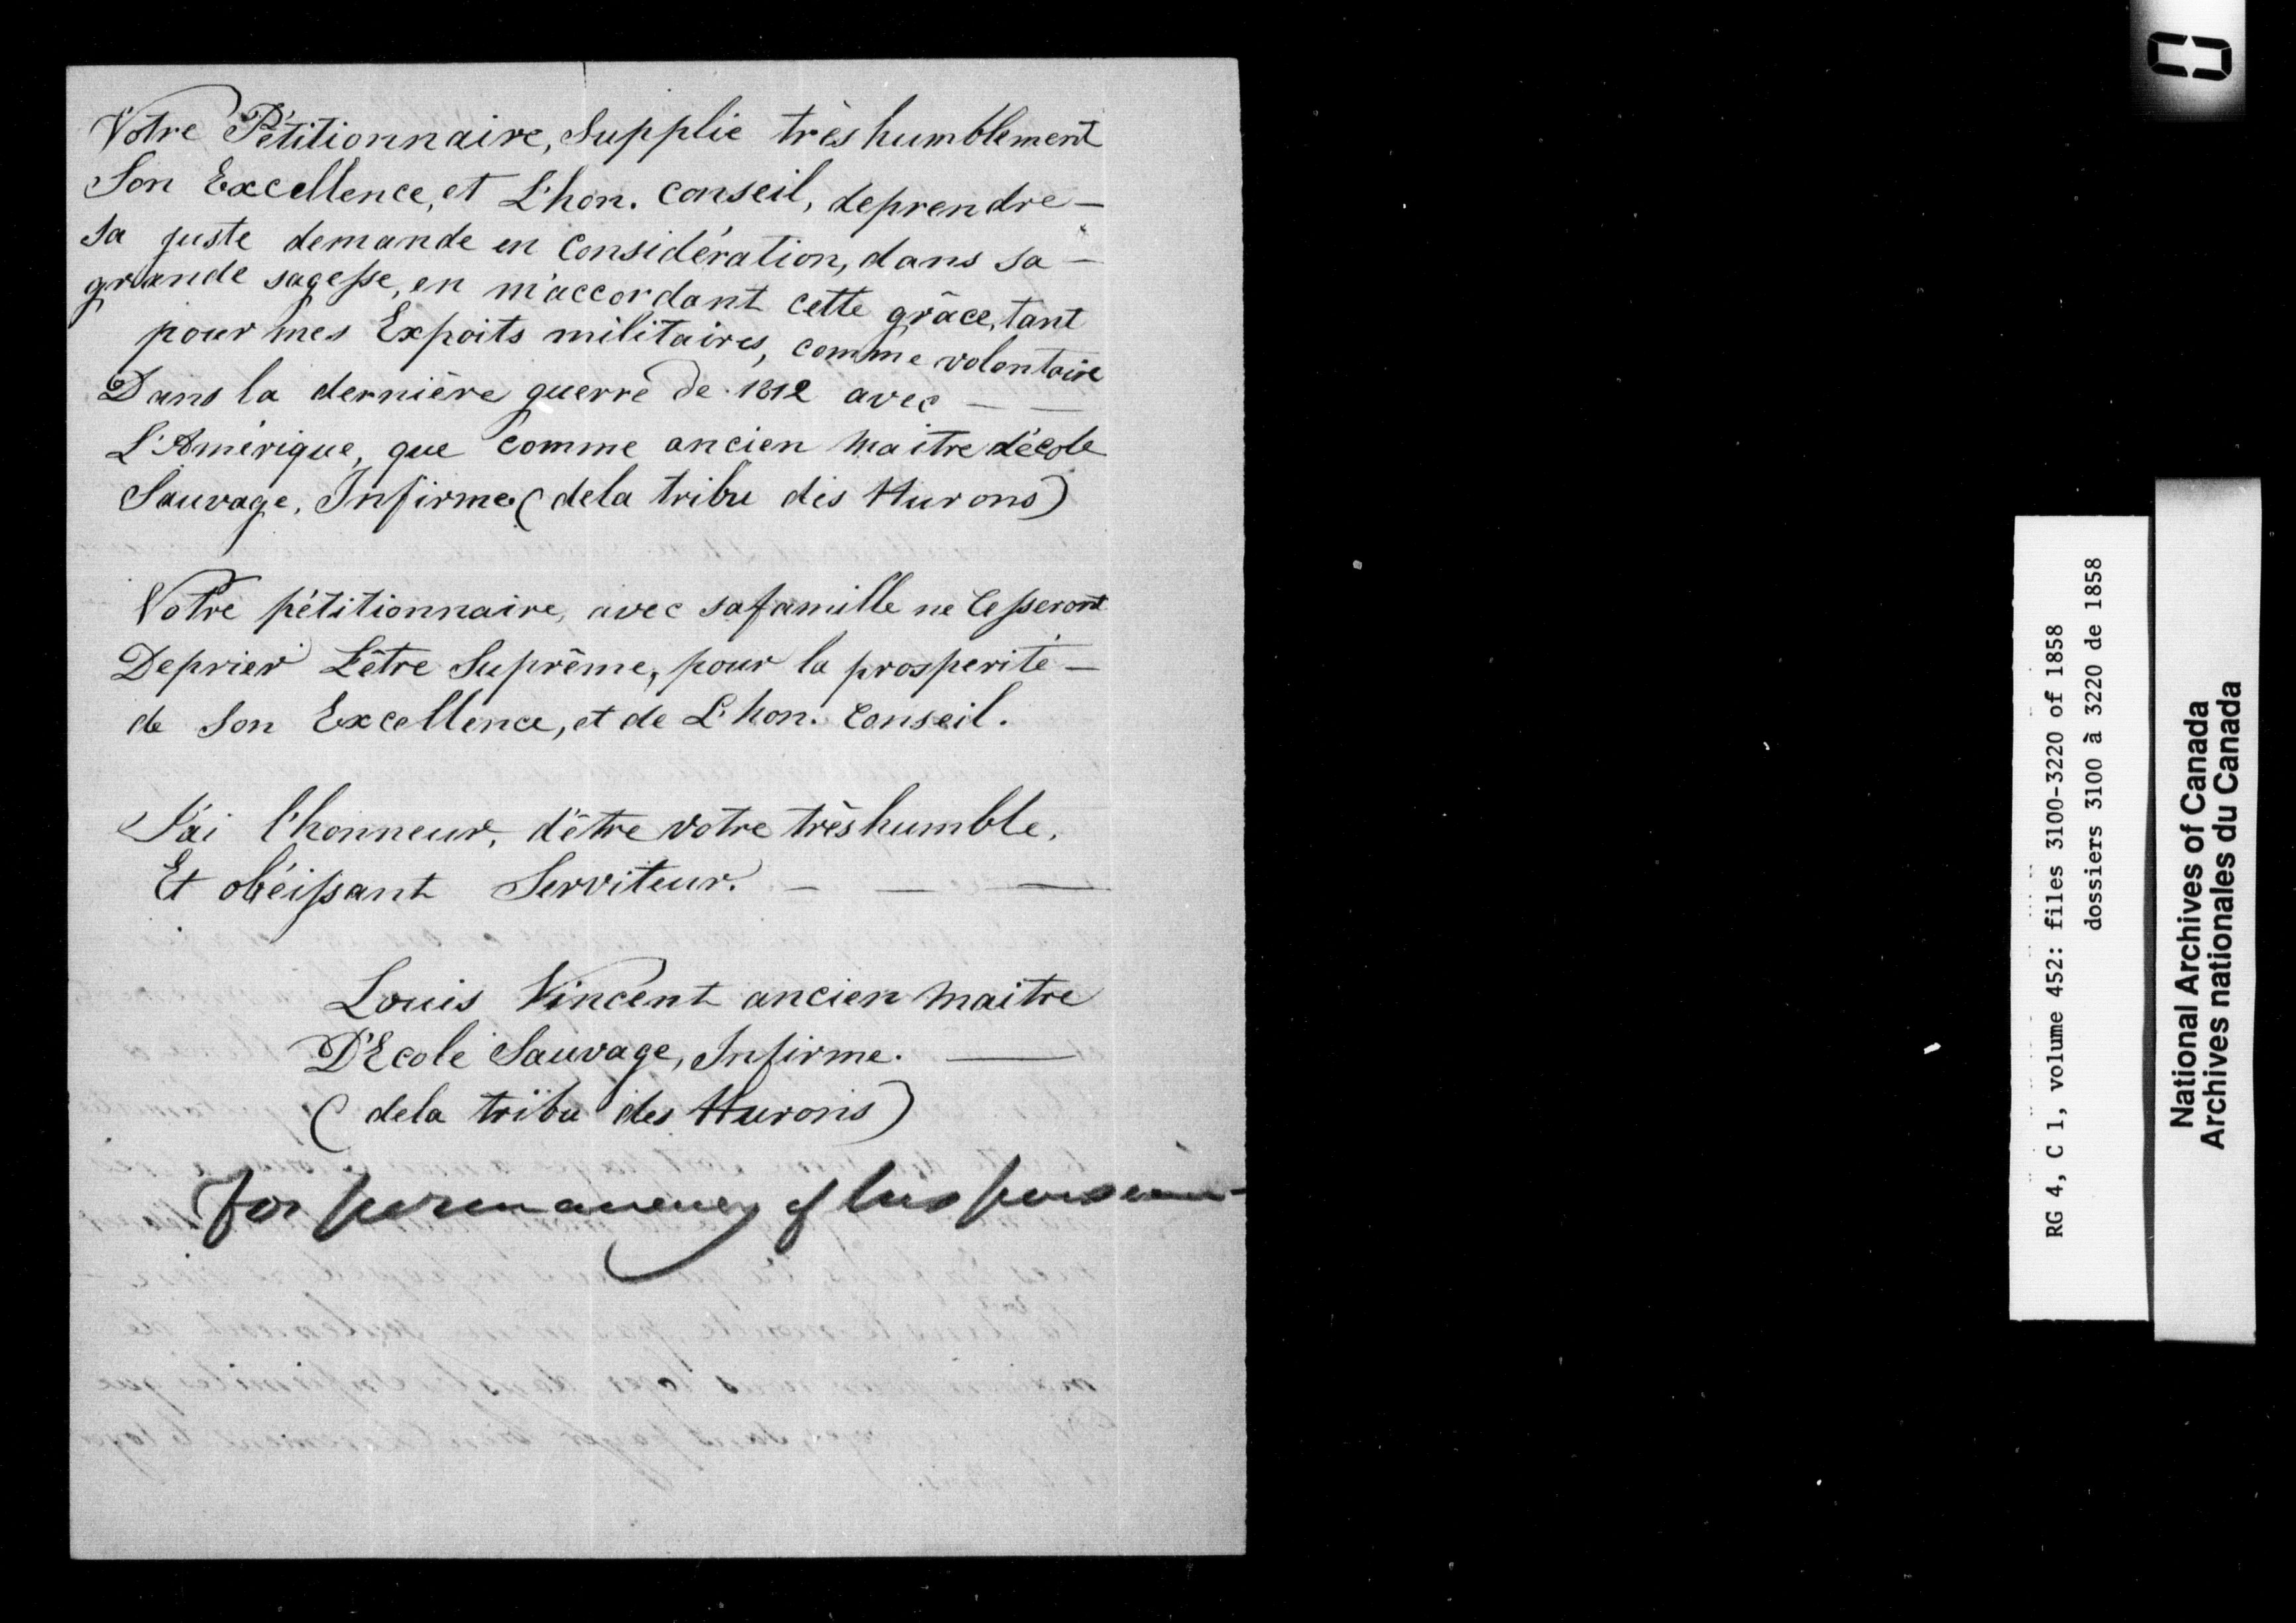 Votre Pétitionnaire, Supplie très humblement
Son Excellence, et L'hon. conseil, deprendre —
sa juste demande en Considération, dans sa —
grande sagesse, en m'accordant cette grâce, tant
pour mes Expoits militaires, comme volontaire
Dans la dernière guerre de 1812 avec — —
L'Amérique, que comme ancien maitre d'école
Sauvage, Infirme. (dela tribu des Hurons)
Votre pétitionnaire, avec safamille ne Cesseront
Deprier L'être Suprême, pour la prosperité —
de Son Excellence, et de L'hon. Conseil.
J'ai l'honneur, d'être votre trèshumble,
Et obéissant Serviteur. — — —
Louis Vincent ancien maitre
D'Ecole Sauvage, Infirme. —
(dela tribu des Hurons)
for permanency of his pension
RG 4, C 1, volume 452: files 3100-3220 of 1858
dossiers 3100 à 3220 de 1858
National Archives of Canada
Archives nationales du Canada